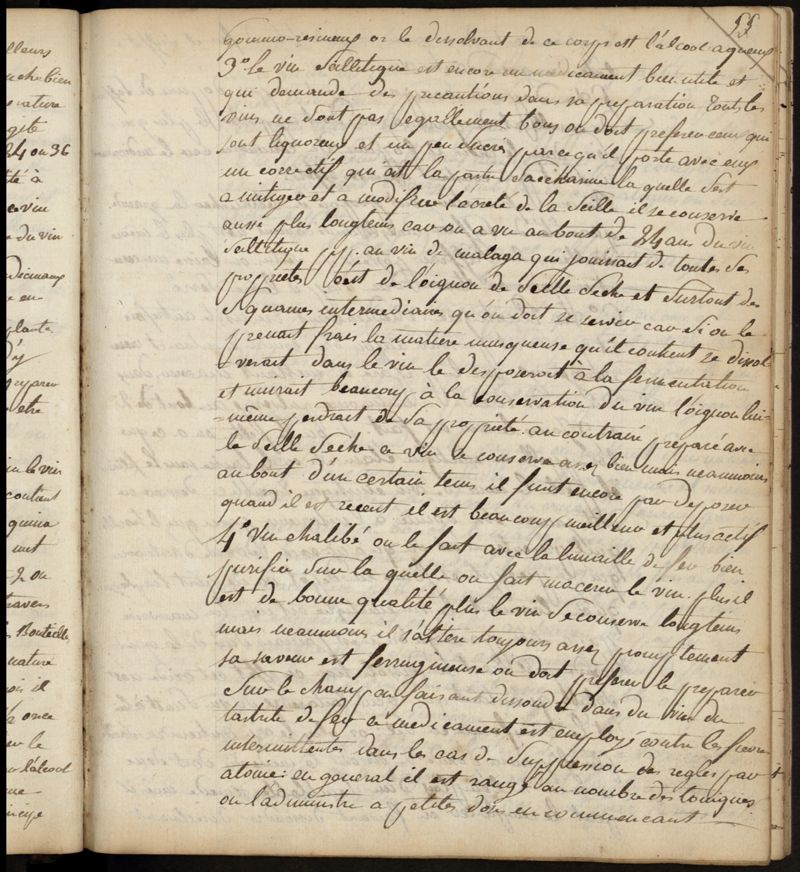 55
gommo-resineux or le dissolvant de ce corps est l'alcool aqueux
3° le vin Scillitique est encore un medicament bien utile et
qui demande des precautions dans sa preparation tous les
vins ne sont pas egallement bons on doit preferer ceux qui
sont liquoreux et un peu sucrés parcequ'il porte avec eux
un correctif qui est la partie Saccharine la quelle sert
a mitiger et a modifier l'acreté de la Scille il se conserve
aussi plus longtems car on a vu au bout de 24 ans du vin
Scillitique pp. au vin de malaga qui jouissait de toutes ses
propriétés c'est de l'oignon de Scille Seche et Surtout des
Squames intermediaires qu'on doit se servir car Si on le
prenait frais la matiere muqueuse qu'il contient se dissol-
-verait dans le vin le disposerait à la fermentation
et nuirait beaucoup à la conservation du vin l'oignon lui-
-même perdrait de Sa propriété. au contraire preparé avec
la Scille Seche ce vin se conserve assez bien mais neanmoins
au bout d'un certain tems il finit encore par deposer
quand il est recent il est beaucoup meilleur et plus actif
4° vin chalibé on le fait avec la limaille de fer bien
purifiée Sur la quelle on fait macerer le vin. plus il
est de bonne qualité plus le vin Se conserve longtems
mais neanmoins il s'altere toujours assez promptement
sa saveur est ferrugineuse on doit preferer le preparer
Sur le champ en faisant dissoudre dans du vin du
tartrite de fer ce medicament est employé contre les fievres
intermittentes dans les cas de Suppression des regles par
atonie: en general il est rangé au nombre des toniques
on l'administre a petites doses en commencant